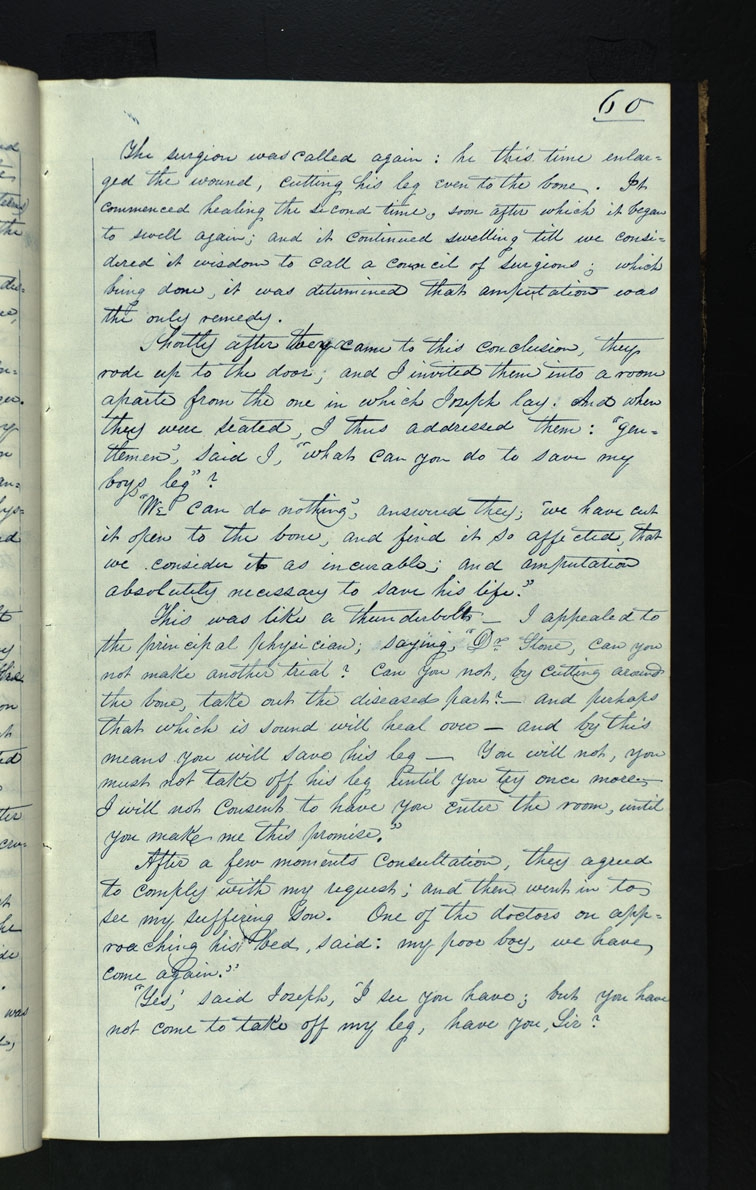 60
The surgion was called again: he this time enlar=
ged the wound, cutting his leg even to the bone. It
commenced healing the second time, soon after which it began
to swell again; and it continued swelling till we consi=
dered it wisdom to call a council of surgions; which
being done, it was determined that amputation was
the only remedy.
Shortly after they came to this conclusion, they
rode up to the door; and I invited them into a room
aparte from the one in which Joseph lay. And when
they were seated, I thus addressed them: "gen=
tlemen", said I, "what can you do to save my
boys leg"?
"We can do nothing", answered they; "we have cut
it open to the bone, and find it so affected, that
we consider it as incurable; and amputation
absolutely necessary to save his life."
This was like a thunderbolt — I appealed to
the principal physician; saying, "Dr Stone, can you
not make another trial? Can you not, by cutting around
the bone, take out the diseased part? — and perhaps
that which is sound will heal over — and by this
means you will save his leg — You will not, you
must not take off his leg until you try once more —
I will not consent to have you enter the room, until
you make me this promise."
After a few moments consultation, they agreed
to comply with my request; and then went in to
see my suffering Son. One of the doctors on app=
roaching his bed, said: my poor boy, we have
come again."
"Yes", said Joseph, "I see you have; but you have
not come to take off my leg, have you, Sir?